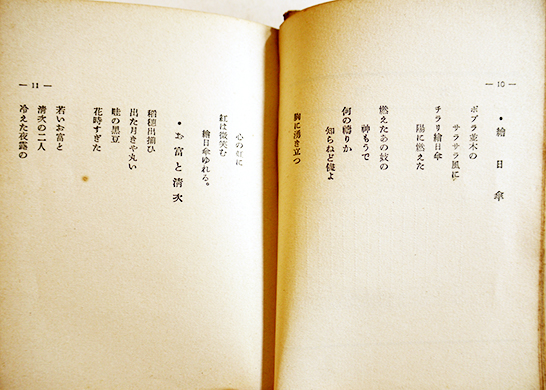 — 10 —
・繪日傘
ポプラ並木の
サラサラ風に
チラリ繪日傘
陽に燃えた
燃えたあの妓の
神もうで
何の禱りか
知らねど儂よ
胸に湧き立つ
心の虹に
紅は微笑む
繪日傘ゆれる。
・お富と清次
稻穗出揃ひ
出た月きや丸い
畦の黑豆
花時すぎた
若いお富と
清次の二人
冷えた夜露の
— 11 —